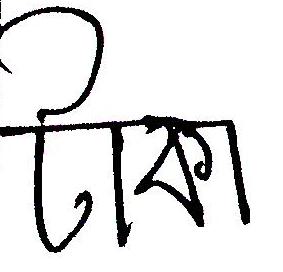 টাকা